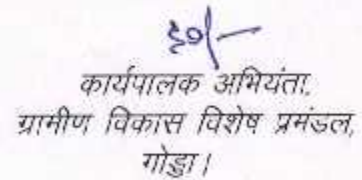 ह०/—
कार्यपालक अभियंता,
ग्रामीण विकास विशेष प्रमंडल,
गोड्डा।